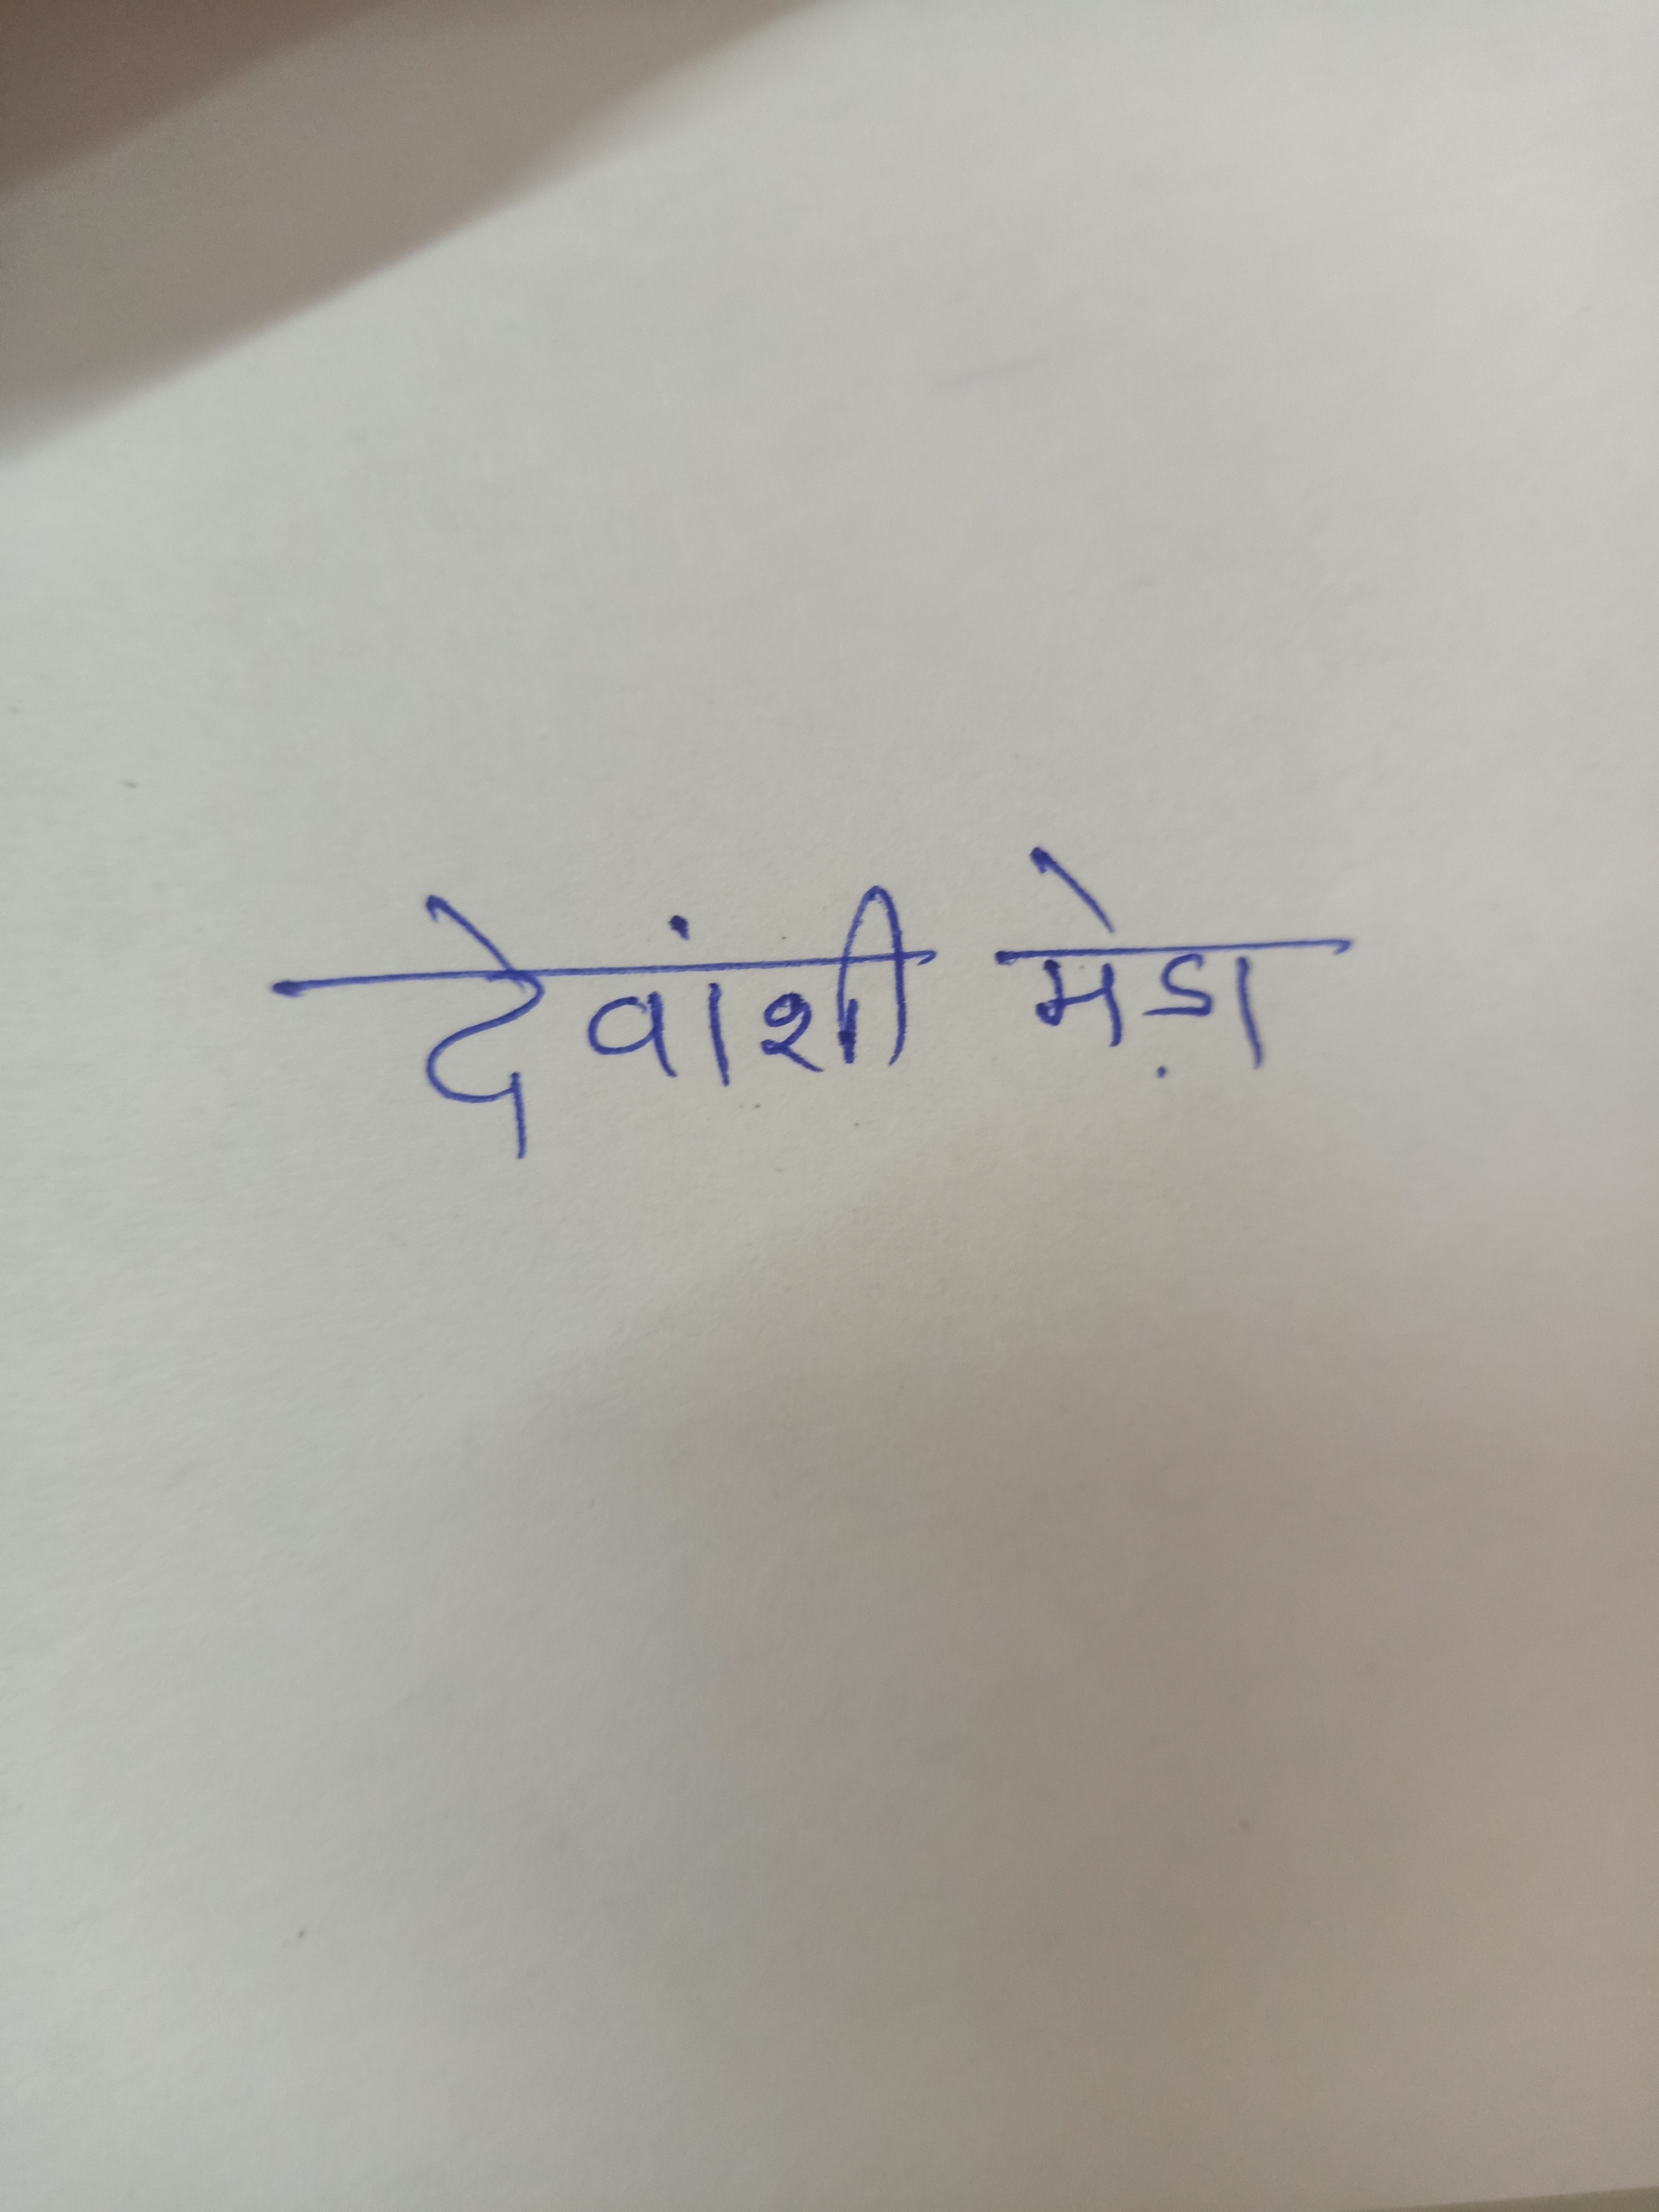 देवांशी मेड़ा